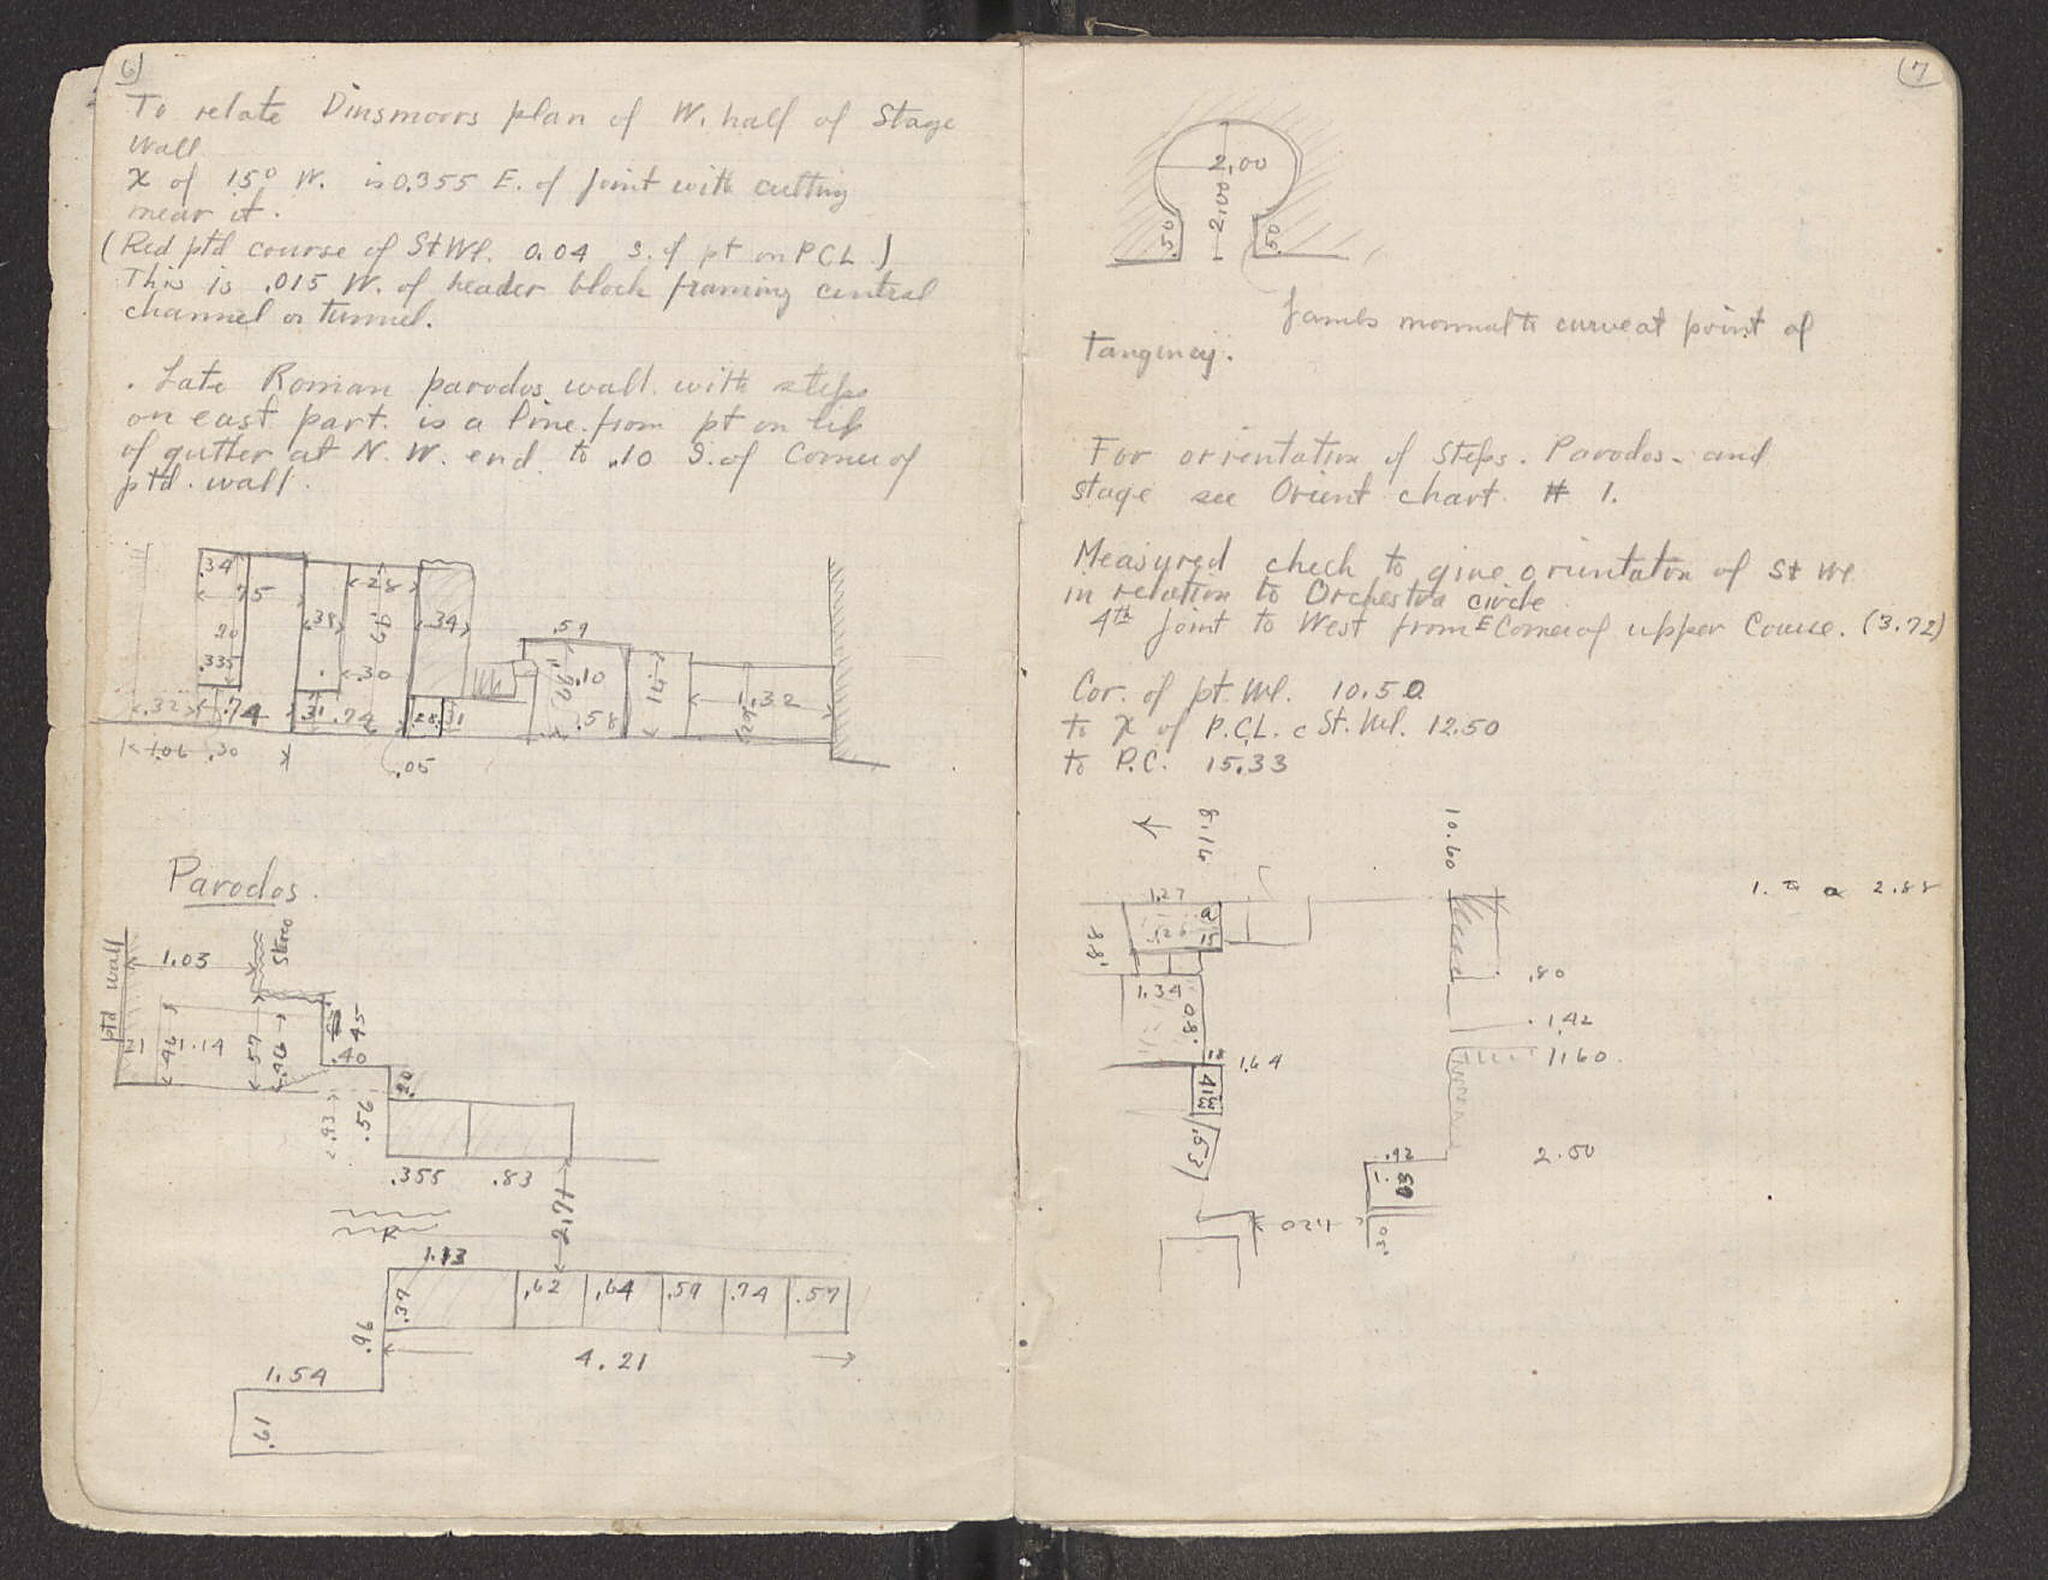 6)
To relate Dinsmoors plan of W. half of Stage
Wall
X of 15° W. is 0.355 E. of joint with cutting
near it.
(Red ptd course of St Wl. 0.04 S. of pt on PCL.)
This is .015 W. of header block framing central
channel or tunnel.
. Late Roman parodos wall with steps
on east part. is a line from pt on lip
of gutter at N. W. end to .10 S. of Corner of
ptd. wall.
.34
.75
.20
.335
.32
.74
1.06
.30
.38
.28
.67
.34
.30
.31
.74
.28
.31
.05
.59
.10
.58
1.32
Parodos.
ptd wall
Stereo
1.03
1.14
.46
.57
.46
.45
.40
.20
.56
2.93
.355
.83
2.71
1.13
.37
.62
.64
.59
.74
.57
.96
4.21
1.54
.61
(7
2.00
2.00
.50
.50
Jambs normal to curve at point of
tangency.
For orientation of Steps. Parodos. and
stage see Orient chart # 1.
Measured check to give orientation of St Wl
in relation to Orchestra circle
4th joint to West from E Corner of upper Course. (3.72)
Cor. of pt. Wl. 10.50
to X of P.C.L. c St. Wl. 12.50
to P.C. 15.33
8.16
10.60
1. to a 2.88
1.27
a
.26
15
.88
1.34
.80
18
1.64
.63
.80
1.42
1.60
2.50
.92
.30